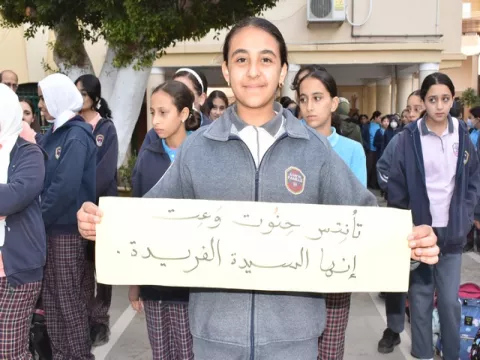 تأنِتس حِنوُت وَعِت
إنها السيدة الفريدة .